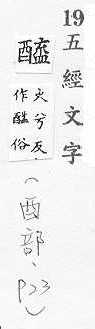 19五經文字
醯
火兮反
作醯俗
(酉部、P23)